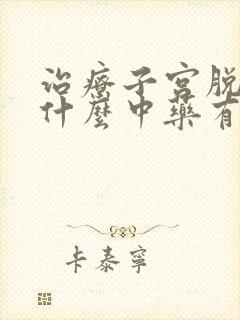 治療子宮脱
什麼中藥有
卡泰寧